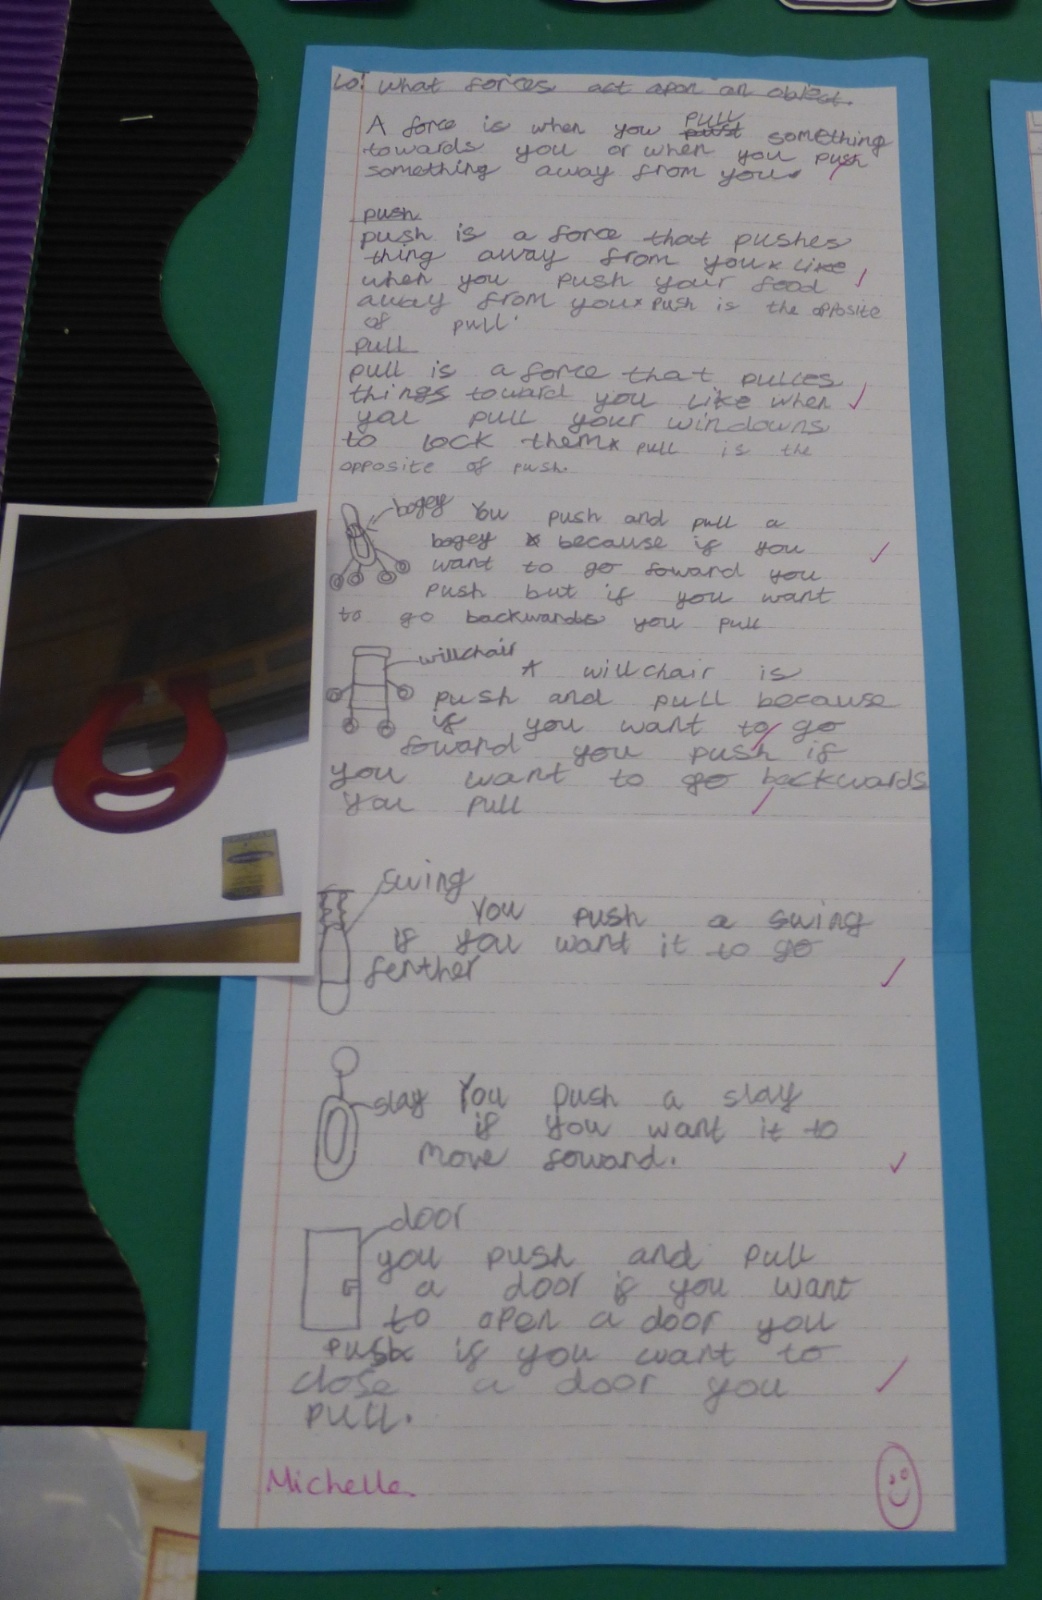 LO: What forces act apon an object.
A force is when you pull something
towards you or when you push
something away from you.
push
push is a force that pushes
thing away from you like
when you push your food
away from you push is the opposite
of pull.
pull
pull is a force that pulles
things toward you like when
you pull your windowns
to lock them pull is the
opposite of push.
bogey You push and pull a
bogey because if you
want to go foward you
push but if you want
to go backwards you pull
willchair
A willchair is
push and pull because
if you want to go
foward you push if
you want to go backwards
you pull
swing
You push a swing
if you want it to go
ferther
slay You push a slay
if you want it to
move foward.
door
you push and pull
a door if you want
to open a door you
push if you want to
close a door you
pull.
Michelle